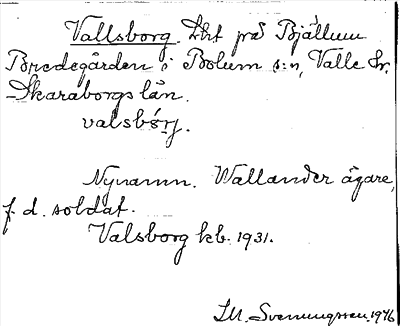 Vallsborg. Lht på Bjällum
Bredegården i Bolum s:n, Valle hr.
Skaraborgs län.
valsbórj.
Nynamn. Wallander ägare,
f. d. soldat.
Valsborg kb. 1931.
I.M. Svenungsson, 1946